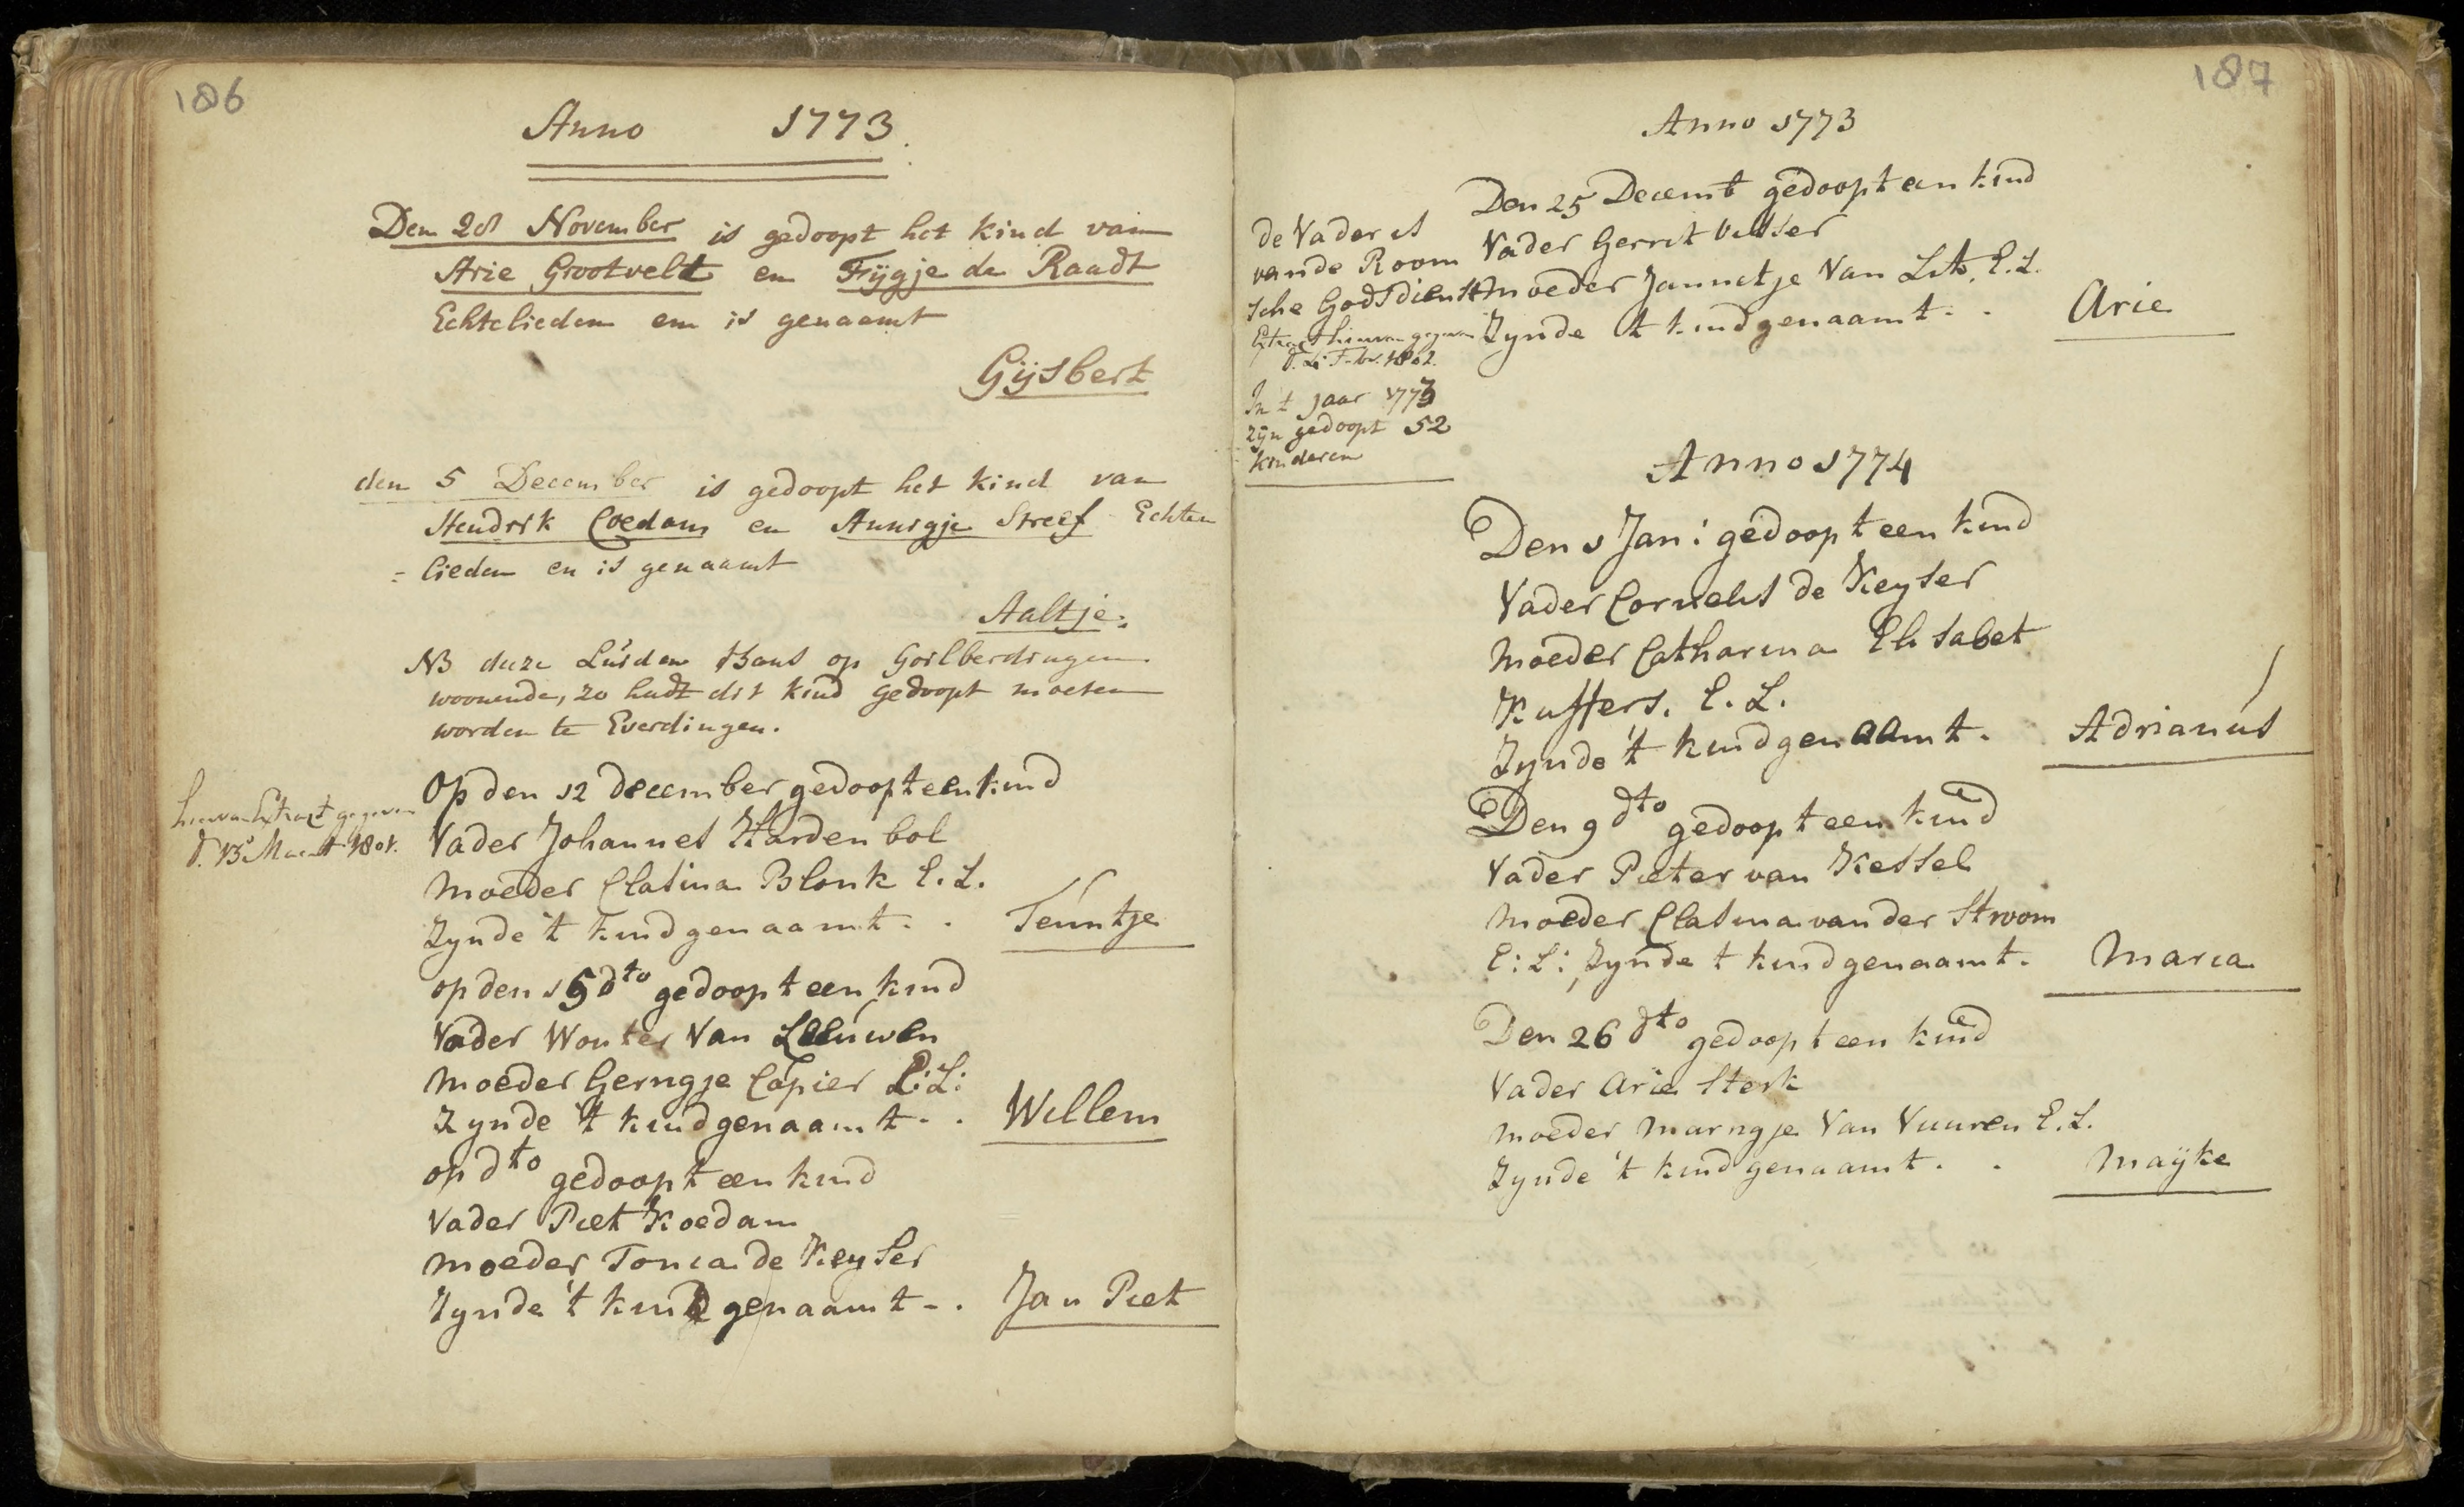 186
Anno 1773.
Den 28 November is gedoopt het kind van
Arie Grootvelt en Fÿgje de Raadt
Echtelieden en is genaamt
Gijsbert
den 5 December is gedoopt het kind van
Hendrik Coedam en Annigje Streef Echte
= lieden en is genaamt
Aaltje.
NB deze Luiden thans op Goilberdingen
woonende, zo hadt dit kind gedoopt moeten
worden te Everdingen.
hiervan Extract gegeven
d. 13 Maart 1801.
Op den 12 december gedoopt een kind
Vader Johannes Harden bol
Moeder Clasina Blonk E. L.
Zynde 't kind genaamt. . Teuntje
op den 19 dto gedoopt een kind
Vader Wouter Van Leeuwen
Moeder Gerrigje Copier E: L:
Zynde 't kind genaamt. . Willem
op dto gedoopt een kind
Vader Piet Koedam
Moeder Tonia de Keyser
Zynde 't kind genaamt. . Jan Piet
187
Anno 1773
Den 25 Decemb gedoopt een kind
Vader Gerrit Visser
Moeder Jannetje Van Lith E. L.
Zynde 't kind genaamt. . Arie
de Vader is
vande Room
sche Godsdienst
Extract hiervan gegeven
In t jaar 1773
zijn gedoopt 52
kinderen
Anno 1774
Den 1 Jan: gedoopt een kind
Vader Cornelis de Keyser
Moeder Catharina Elisabet
Kuffers. E. L.
Zynde 't kind genaamt. Adrianus
Den 9 dto gedoopt een kind
Vader Pieter van Kessel
Moeder Clasina van der Stroom
E: L: Zynde t kind genaamt. Maria
Den 26 dto gedoopt een kind
Vader Arie Sterk
Moeder Marrigje Van Vuuren E. L.
Zynde 't kind genaamt. . Maÿke